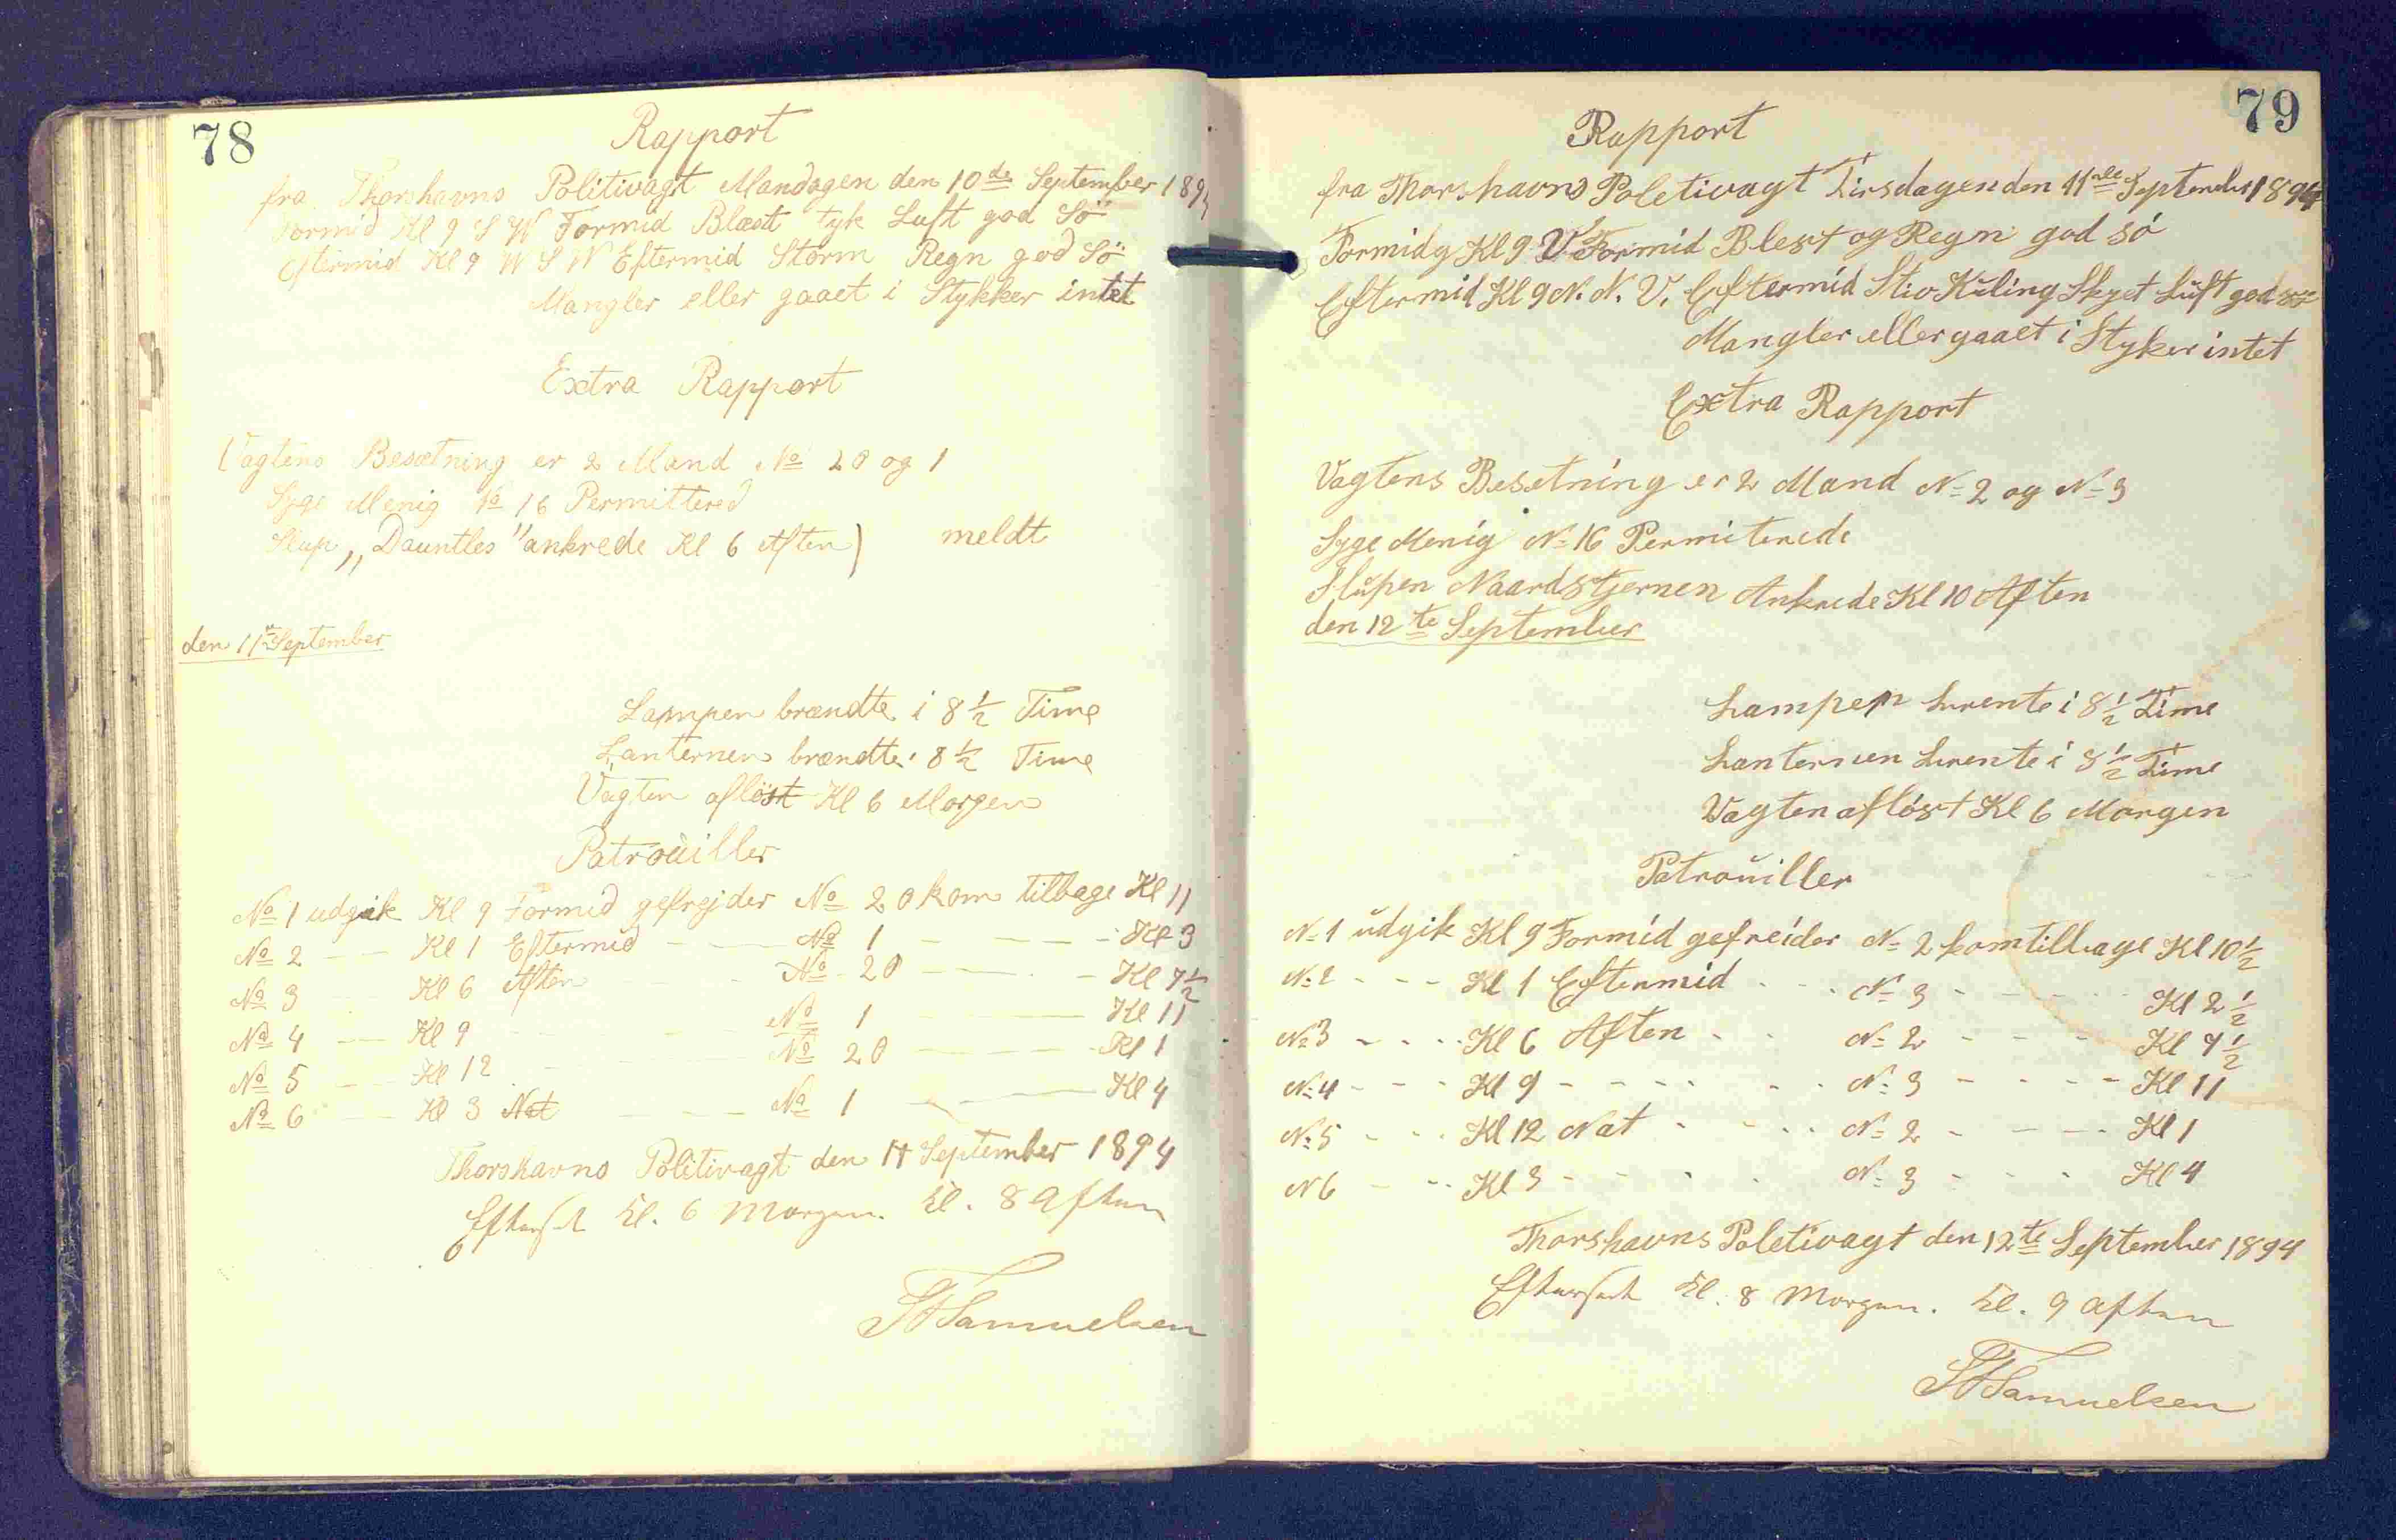 78
Rapport
fra Thorshavns Politivagt Mandagen den 10de September 1894
Formid Kl 9 S W Formid Blæst tyk Luft god Sö
Eftermid Kl 9 W S W Eftermid Storm Regn god Sö
Mangler eller gaaet i Stykker intet
Extra Rapport
Vagtens Besætning er 2 Mand No 20 og 1
Syge Menig No 16 Permittered
Slup „Dauntles" ankrede Kl 6 Aften) meldt
den 11te September
Lampen brændte i 8 1/2 Time
Lanternen brændte i 8 1/2 Time
Vagten aflöst Kl 6 Morgen
Patroŭiller
No 1 udgik Kl 9 Formid gefrejder No 20 kom tilbage Kl 11
No 2 — — Kl 1 Eftermid — — No 1 — — — Kl 3
No 3 — — Kl 6 Aften — — No 20 — — — Kl 7 1/2
No 4 — — Kl 9 — — No 1 — — — Kl 11
No 5 — — Kl 12 — — No 20 — — — Kl 1
No 6 — — Kl 3 Nat — — No 1 — — — Kl 4
Thorshavns Politivagt den 11 September 1894
Efterset Kl. 6 Morgen. Kl. 8 Aften
Samuelsen
79
Rapport
fra Thorshavns Poletivagt Tirsdagen den 11te September 1894
Formidg Kl 9 V Formid Blest og Regn god só
Eftermid Kl 9 N. N. V. Eftermid Stiv Kŭling Skyet Lŭft god
Mangler eller gaaet i Styker intet
Extra Rapport
Vagtens Besetning er 2 Mand No 2 og No 3
Syge Menig No 16 Permiterede
Slŭpen Naardstjernen Ankrede Kl 10 Aften
den 12te September
Lampen brente i 8 1/2 Time
Lanternen brente i 8 1/2 Time
Vagten aflóst Kl 6 Morgen
Patroŭiller
No 1 ŭdgik Kl 9 Formid gefreider No 2 kom tilbage Kl 10 1/2
No 2 - - - Kl 1 Eftermid - - - No 3 - - - Kl 2 1/2
No 3 - - - Kl 6 Aften - - No 2 - - - Kl 7 1/2
No 4 - - - Kl 9 - - - - - No 3 - - - - Kl 11
No 5 - - - Kl 12 Nat - - - - No 2 - - - - Kl 1
N 6 - - - Kl 3 - - - - - No 3 - - - Kl 4
Thorshavns Poletivagt den 12te September 1894
Efterset Kl. 8 Morgen. Kl. 9 Aften
Samuelsen